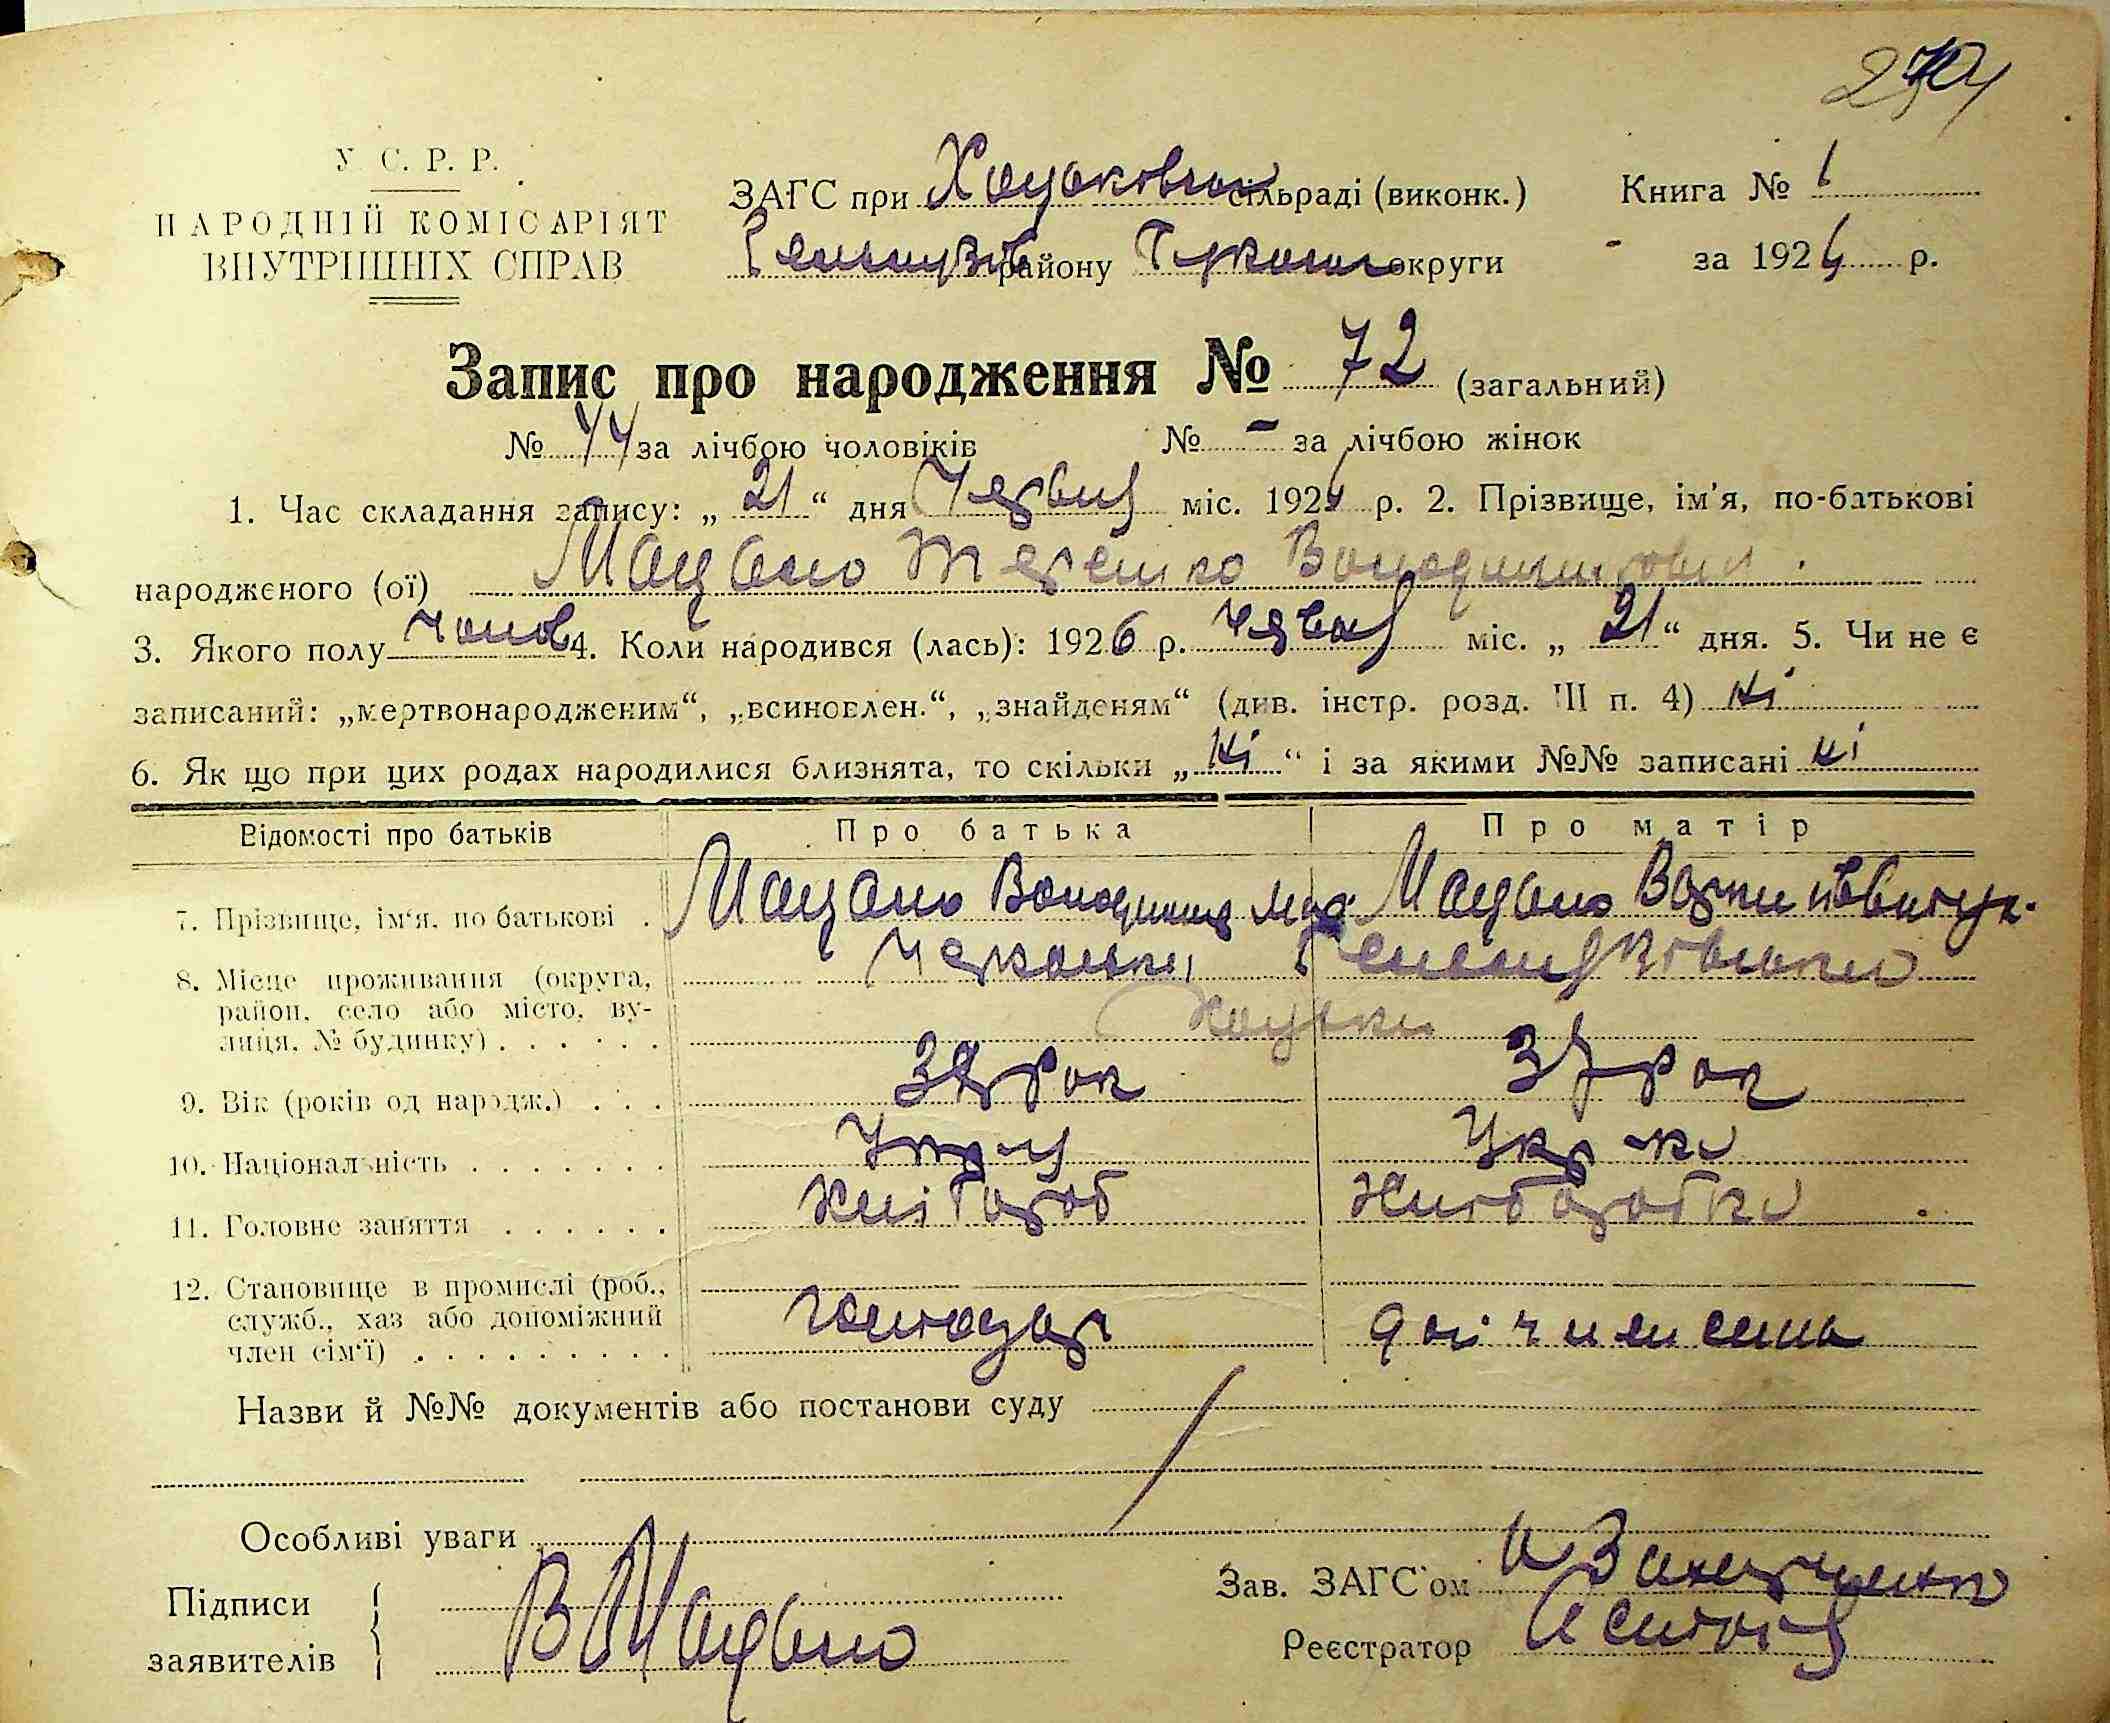 У. С. Р. Р.
НАРОДНІЙ КОМІСАРІЯТ
ВНУТРІШНІХ СПРАВ
ЗАГС при Хоцьковськ сільраді (виконк.)
району округи
Книга № 1
за 1926 р.
Запис про народження № 72 (загальний)
№ 44 за лічбою чоловіків № - за лічбою жінок
1. Час складання запису: „ 21 “ дня Червня міс. 1926 р. 2. Прізвище, ім'я, по-батькові
народженого (ої) Мацало Терешко Володимирович
3. Якого полу чолов 4. Коли народився (лась): 1926 р. Червня міс. „ 21 “ дня. 5. Чи не є
записаний: „мертвонародженим“, „всиновлен.“, „знайденям“ (див. інстр. розд. III п. 4) ні
6. Як що при цих родах народилися близнята, то скільки „ ні “ і за якими №№ записані ні
Відомості про батьків Про батька Про матір
7. Прізвище, ім'я, по батькові . Мацало Володимир Мацало
8. Місце проживання (округа, Черкаськ
район, село або місто, ву- Хоцьки
лиця, № будинку) . . . . . .
9. Вік (років од народж.) . . . рок 37 рок
10. Національність . . . . . . . Укр-ц Укр-ка
11. Головне заняття . . . . . . Хлібороб Хліборобка
12. Становище в промислі (роб.,
служб., хаз або допоміжний
член сім'ї) . . . . . . . . .
Назви й №№ документів або постанови суду
Особливі уваги
Підписи
заявителів В Мацало
Зав. ЗАГС'ом
Реєстратор